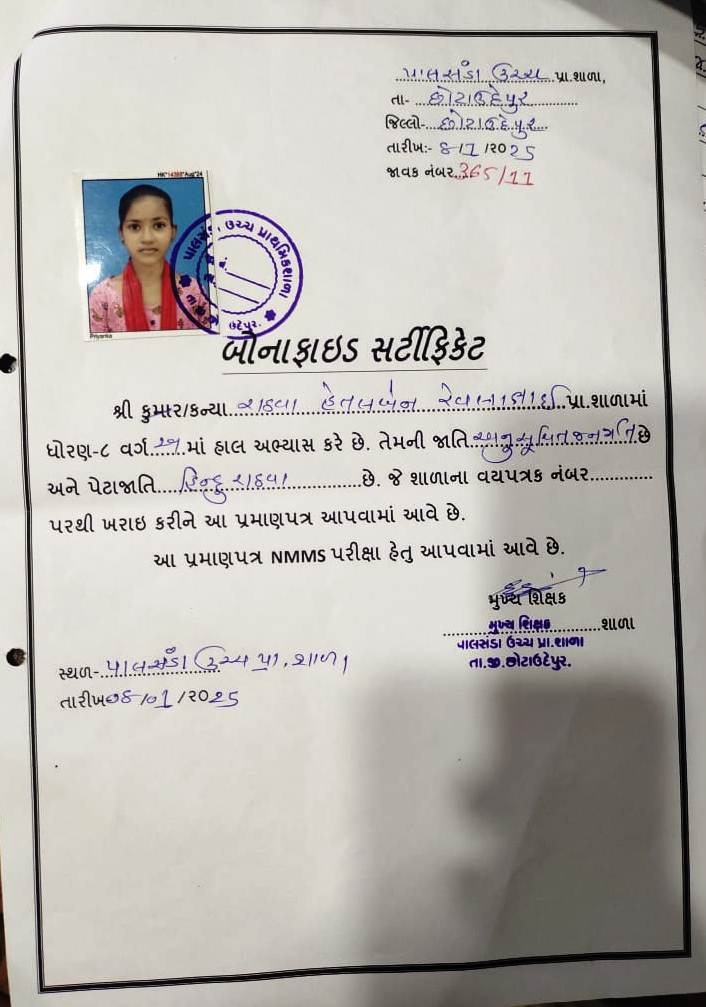 પાલસંડા ઉચ્ચ પ્રા.શાળા,
તા- છોટાઉદેપુર
જિલ્લો- છોટાઉદેપુર
તારીખ:- 8/1/2025
જાવક નંબર. 365/11
HK*14388*Aug*24
Priyanka
પાલસંડા ઉચ્ચ પ્રાથમિકશાળા
છોટાઉદેપુર.
બોનાફાઇડ સર્ટીફિકેટ
શ્રી કુમાર/કન્યા રાઠવા હેતલબેન પ્રા.શાળામાં
ધોરણ-૮ વર્ગ માં હાલ અભ્યાસ કરે છે. તેમની જાતિ અનુસૂચિત જનજાતિ છે
અને પેટાજાતિ હિન્દુ રાઠવા છે. જે શાળાના વયપત્રક નંબર
પરથી ખરાઇ કરીને આ પ્રમાણપત્ર આપવામાં આવે છે.
આ પ્રમાણપત્ર NMMS પરીક્ષા હેતુ આપવામાં આવે છે.
મુખ્ય શિક્ષક
મુખ્ય શિક્ષક શાળા
પાલસંડા ઉચ્ચ પ્રા.શાળા
તા.જી.છોટાઉદેપુર.
સ્થળ- પાલસંડા ઉચ્ચ પ્રા. શાળા
તારીખ 08/01/2025